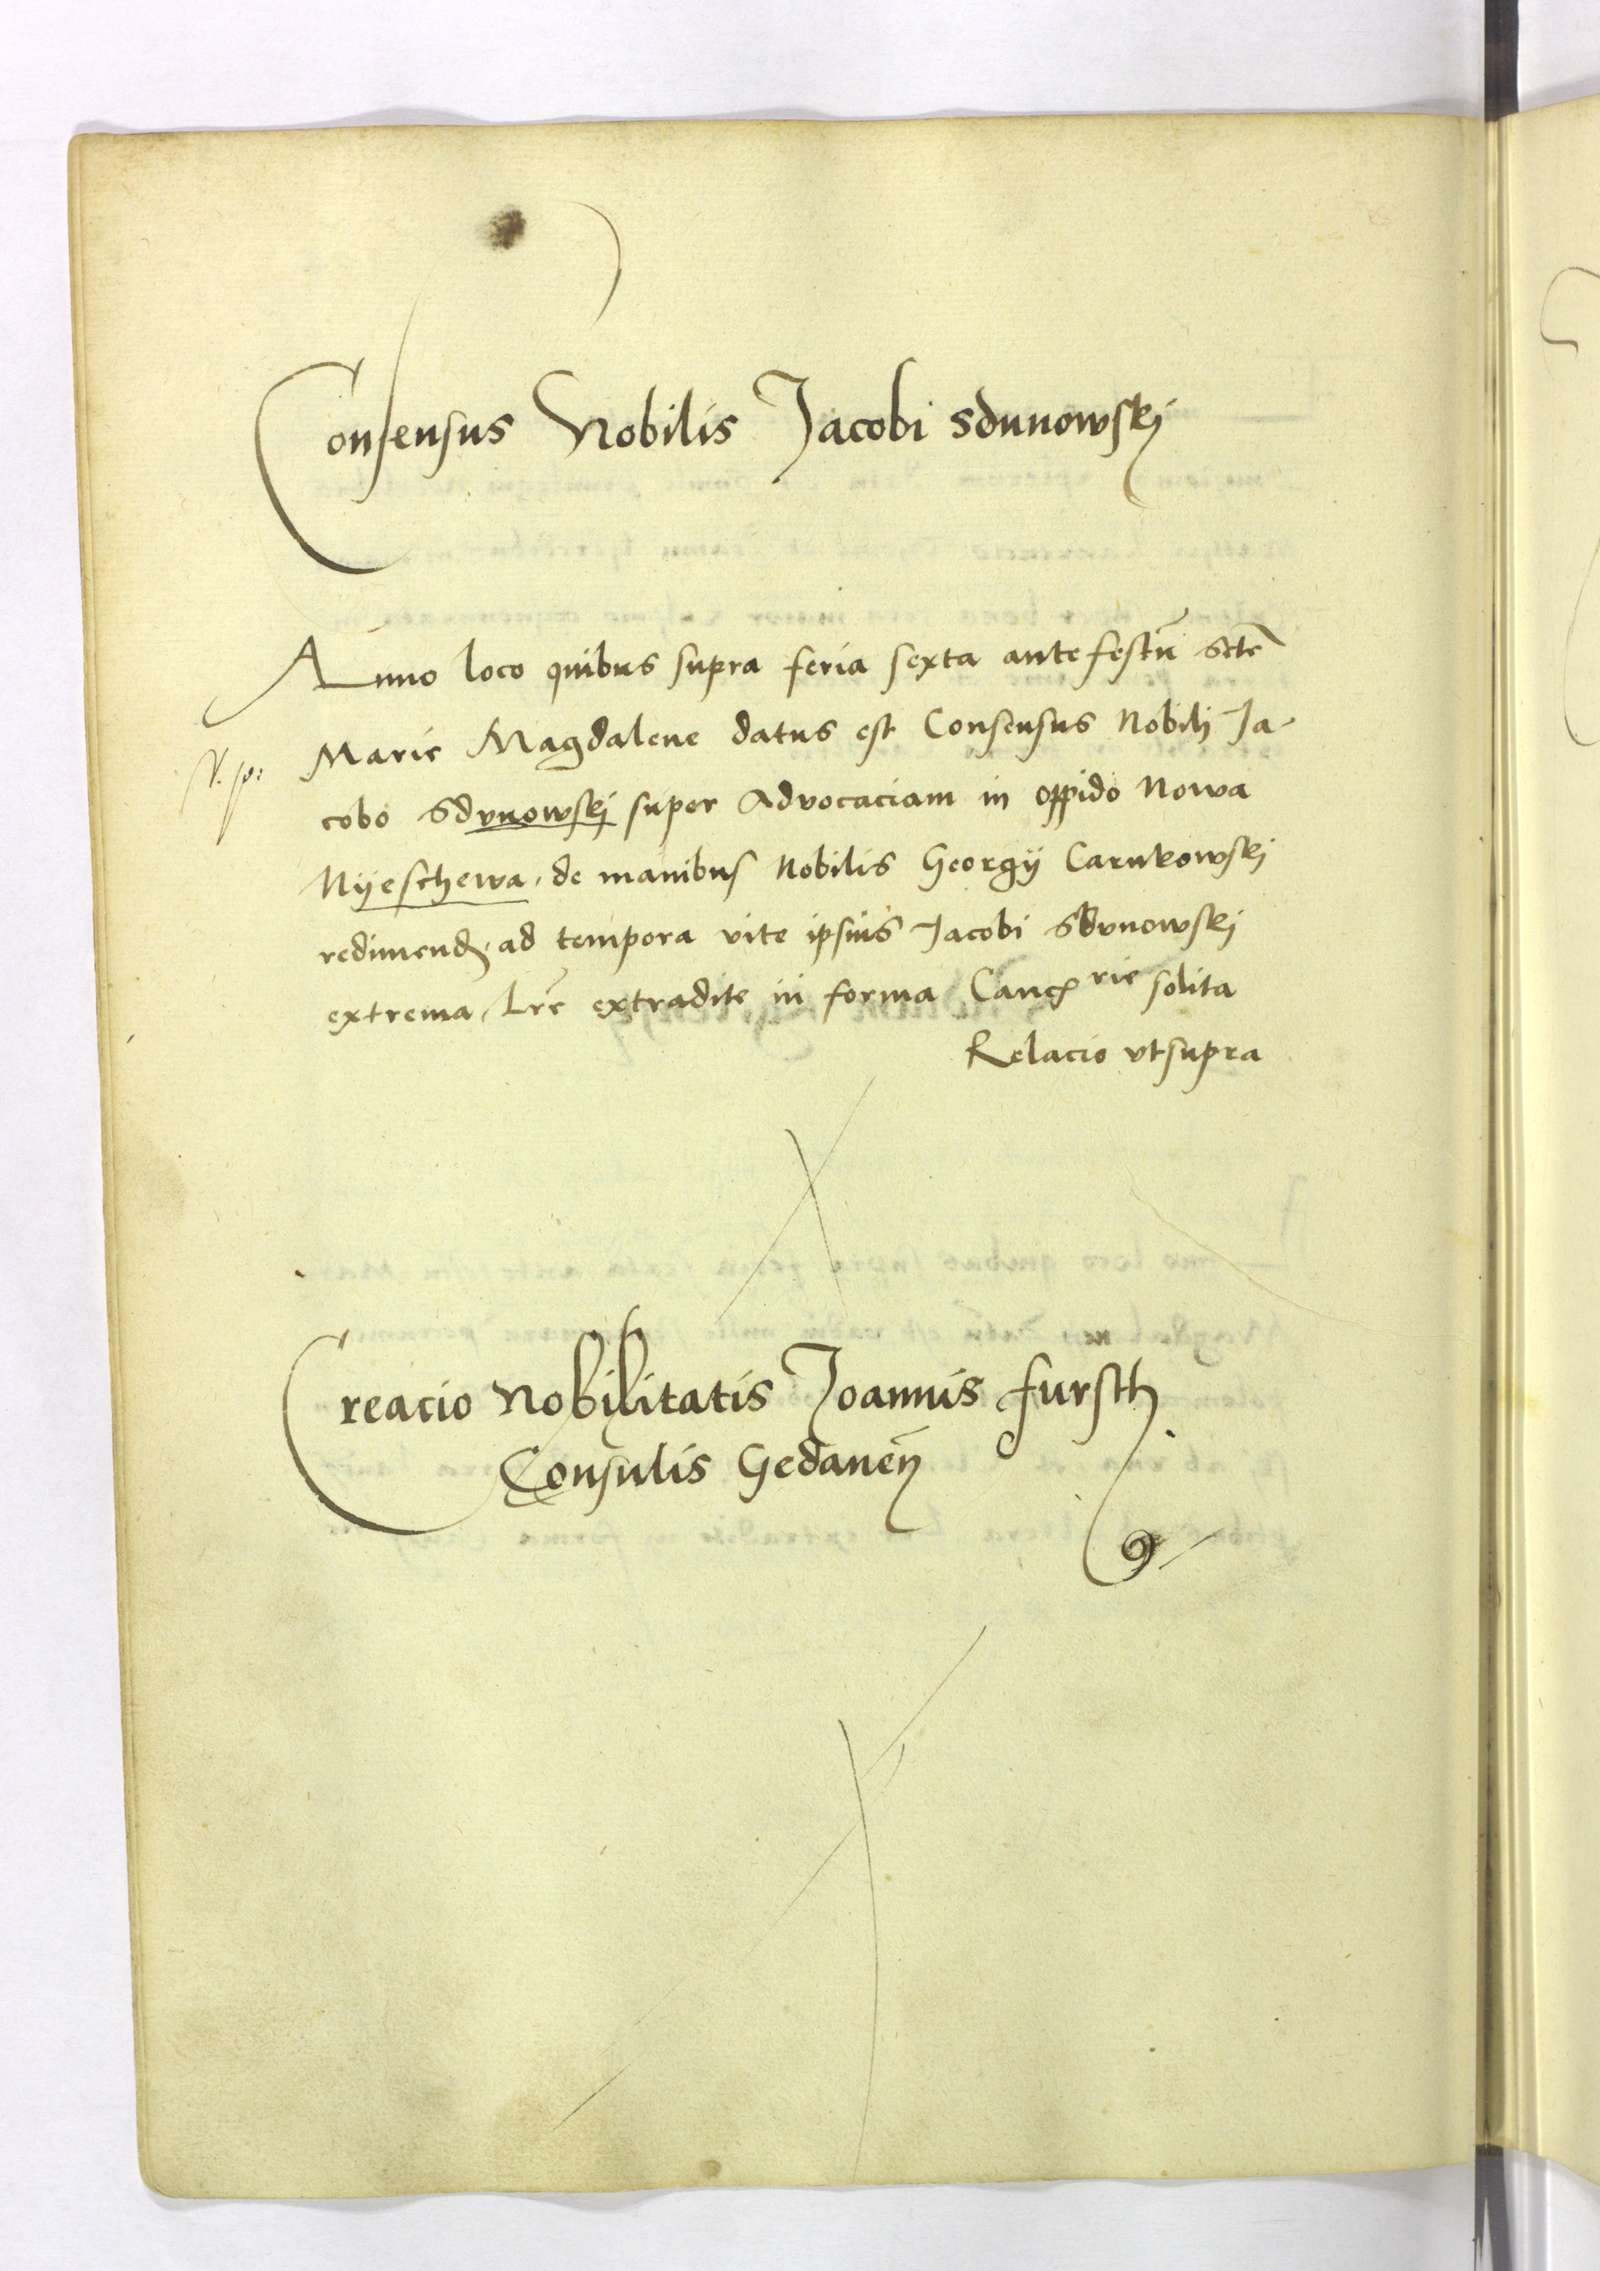 Consensus Nobilis Jacobi Sdunowskj
Anno loco quibus supra feria sexta ante festū Scte
Marie Magdalene datus est Consensus Nobili Ja-
cobo Sdvnowskj super Advocaciam in oppido Nowa
Nyeschewa, de manibus Nobilis Georgij Carnkowskj
redimend, ad tempora vite ipsius Jacobi Sdvnowskj
extrema, Lre extradite in forma Canc rie solita
Relacio vt supra
Creacio Nobilitatis Joannis fursth
Consulis Gedaneñ